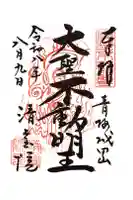 奉拝
青梅成田山
大聖不動明王
令和八年
八月九日
清宝院